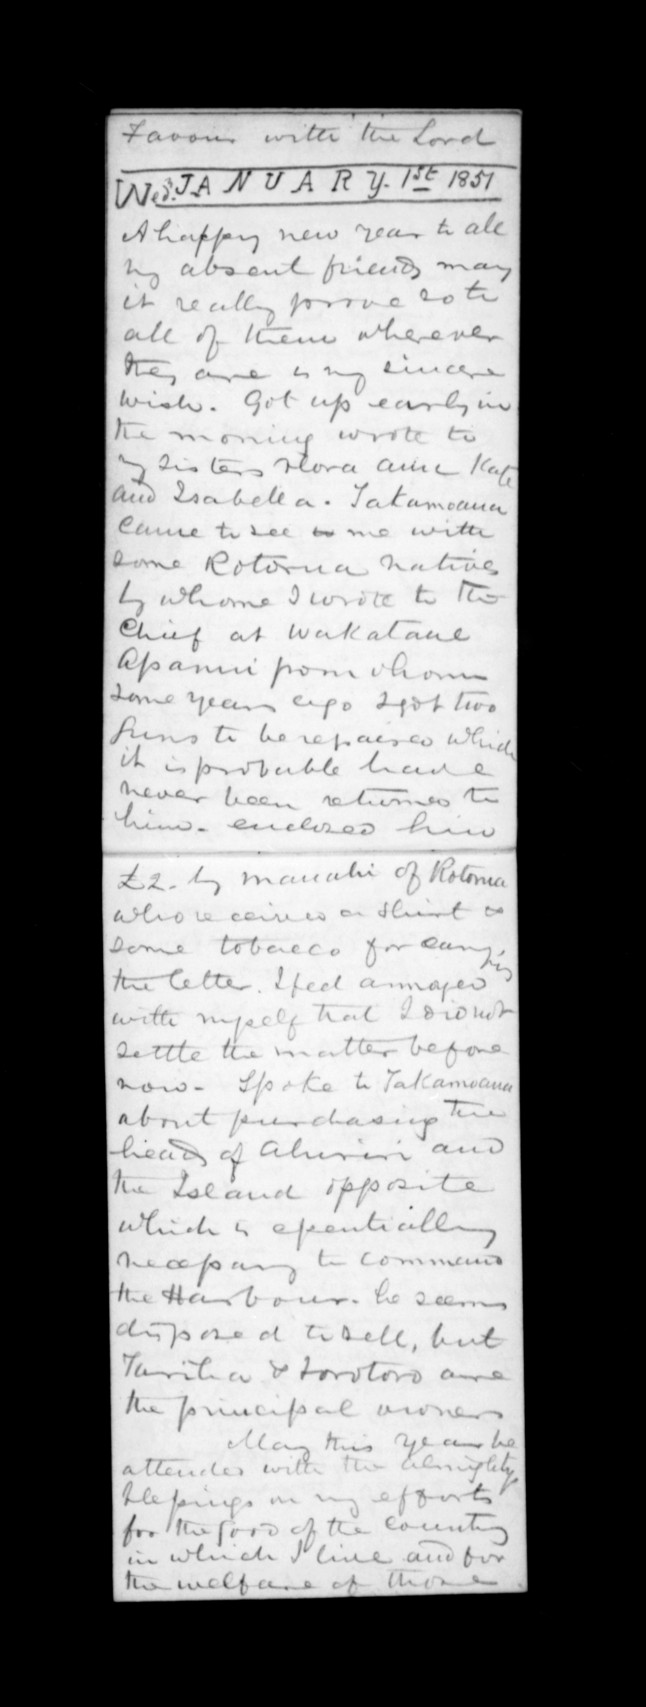 Favour with the Lord
Wed. JANUARY. 1st 1851
A happy new year to all
my absent friends may
it really prove so to
all of them wherever
they are is my sincere
wish. Got up early in
the morning wrote to
my sisters Flora and Kate
and Isabella. Takamoana
came to see me with
some Rotorua natives
by whome I wrote to the
Chief at Wakatane
Apanui from whom
some years ago I got two
Guns to be repaired which
it is probable have
never been returned to
him - enclosed him
£2. by manahi of Rotorua
who received a shirt &
some tobacco for carrying
the letter. I feel annoyed
with myself that I did not
settle the matter before
now - Spoke to Takamoana
about purchasing the
heads of Ahuriri and
the Island opposite
which is essentially
necessary to command
the Harbour. he seems
disposed to sell, but
Tariha & Torotoro are
the principal owners
May this year be
attended with the almightys
blessings on my efforts
for the good of the country
in which I live and for
the welfare of those